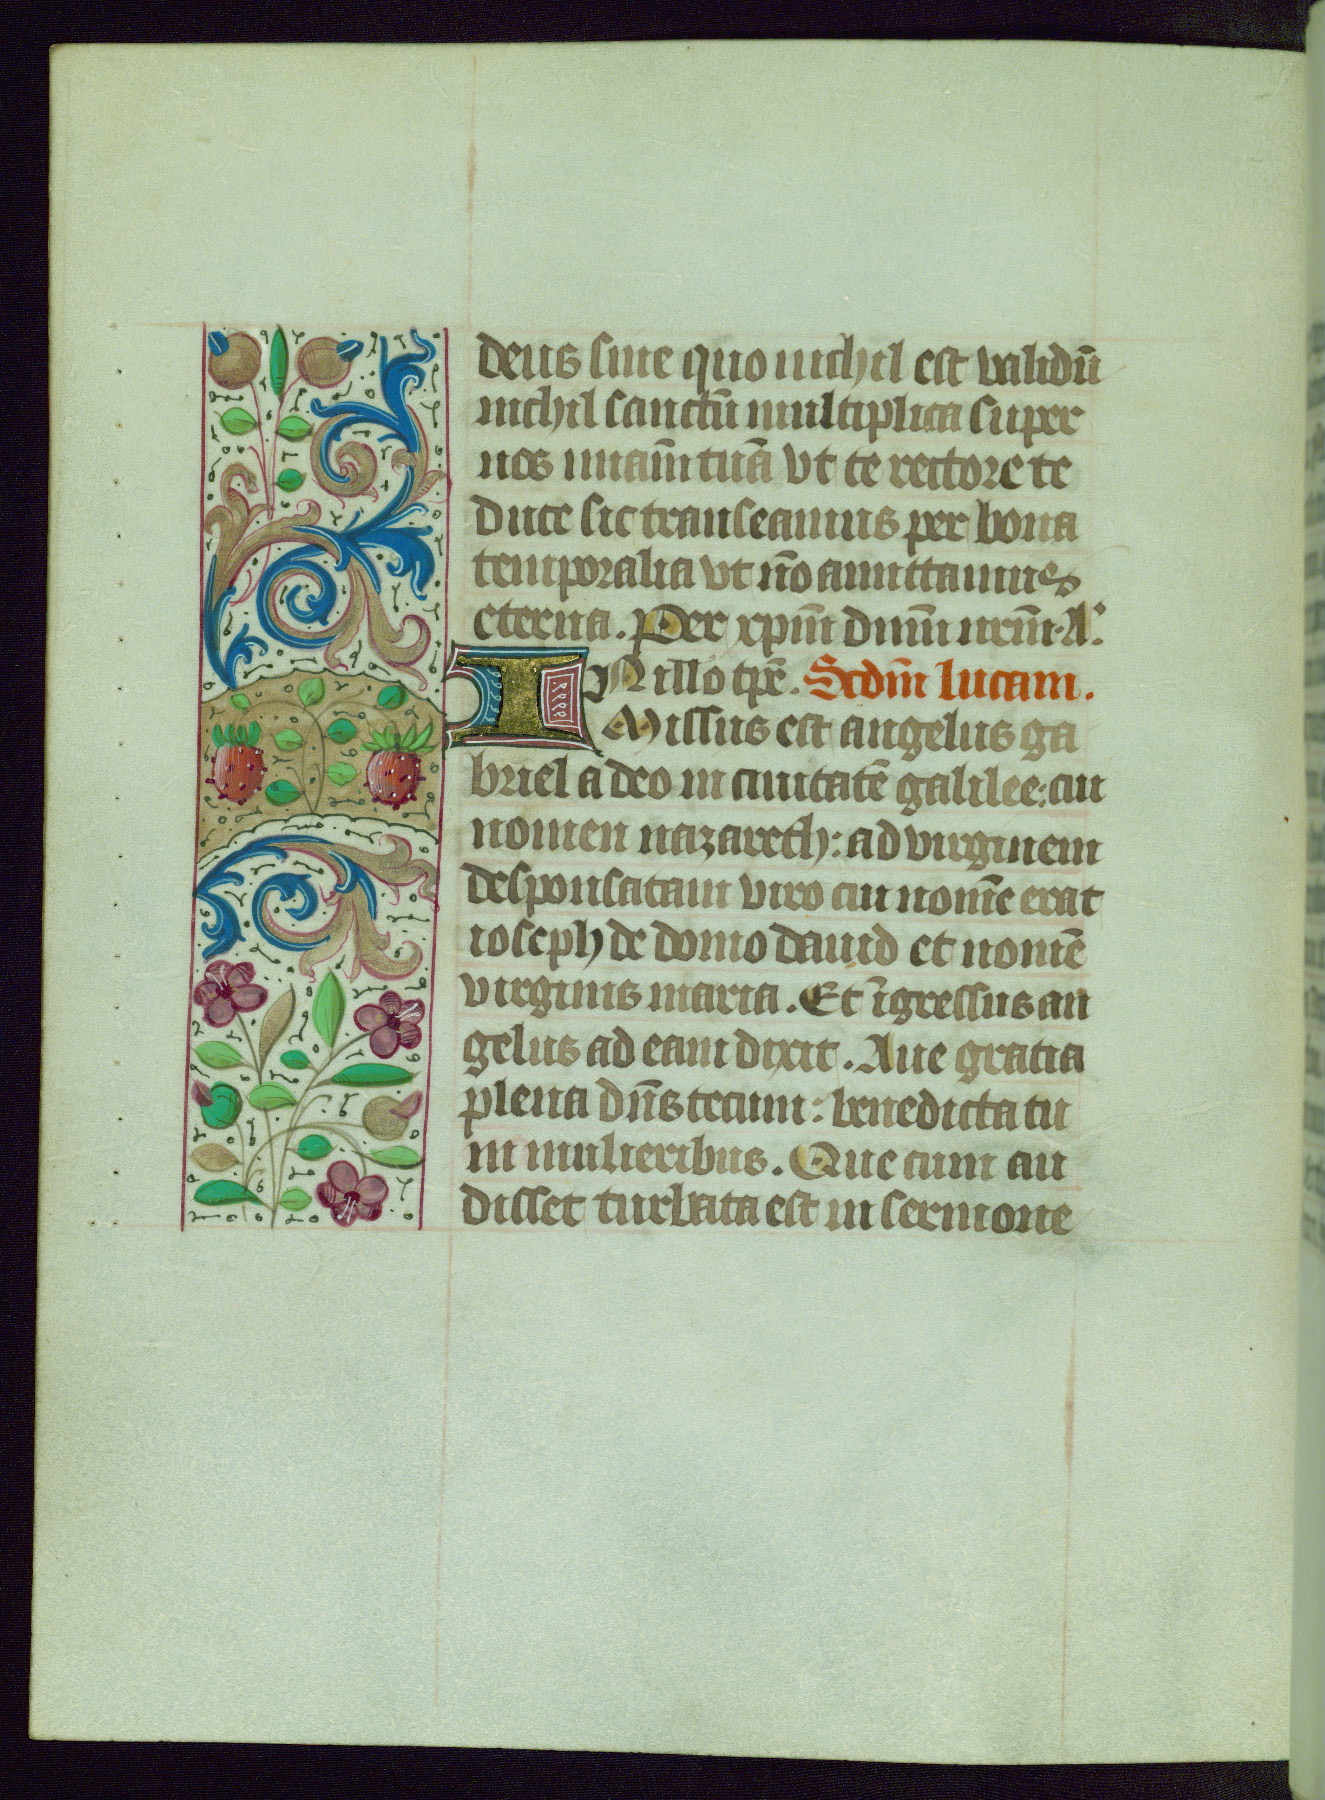 deus sine quo nichil est validū
nichil sanctū multiplica super
nos miā̄m tuā vt te rectore te
duce sic transeamus per bona
temporalia vt nō amittamus
eterna. Per xp̄m dn̄m nr̄m. A.
IN illo tp̄e. Scdm̄ lucam.
Missus est angelus ga
briel a deo in ciuitatē galilee: cui
nomen nazareth: ad virginem
desponsatam viro cui nomē erat
ioseph de domo dauid et nomē
virginis maria. Et īgressus an
gelus ad eam dixit. Aue gratia
plena dn̄s tecum: benedicta tu
in mulieribus. Que cum au
disset turbata est in sermone